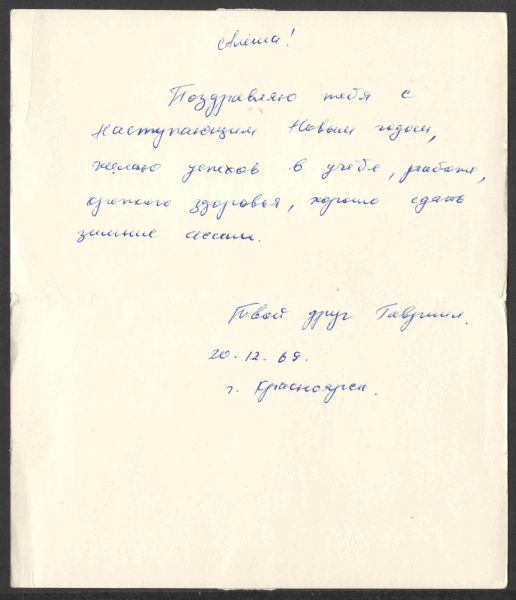 Алёша!
Поздравляю тебя с
наступающим Новым годом,
желаю успехов в учёбе, работе,
крепкого здоровья, хорошо сдать
зимние сессии.
Твой друг Гавриил.
20.12.69.
г. Красноярск.